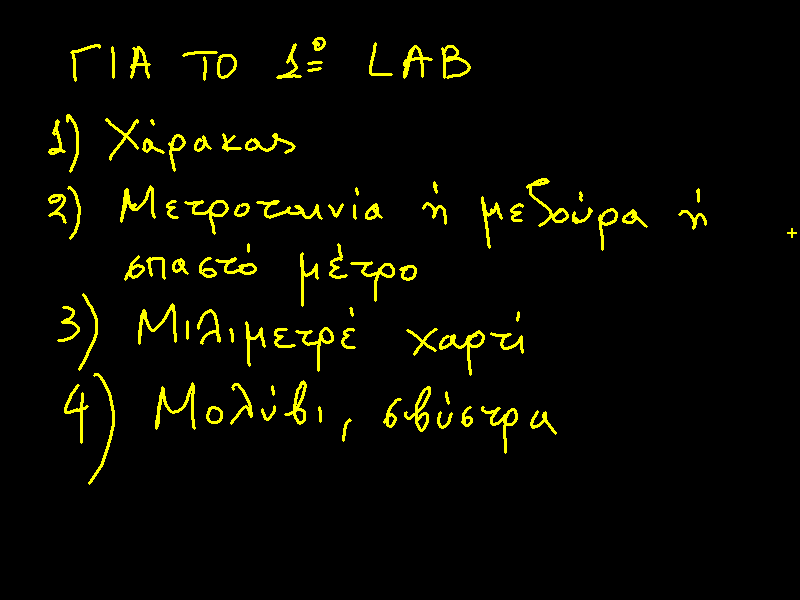 ΓΙΑ ΤΟ 1º LAB
1) Χάρακας
2) Μετροταινία ή μεζούρα ή
σπαστό μέτρο
3) Μιλιμετρέ χαρτί
4) Μολύβι, σβύστρα